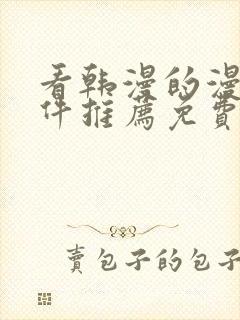 看韩漫的漫
件推薦免費
賣包子的包子